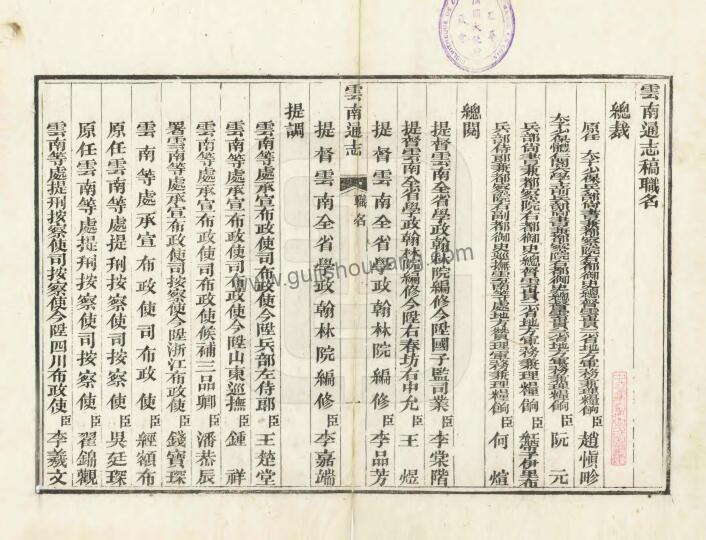 雲南通志稿職名
總裁
原任 太子少保兵部尚書兼都察院右都御史總督雲貴二省地方軍務兼理糧餉 臣 趙慎畛
太子少保體仁閣大學士前兵部尚書兼都察院右都御史總督雲貴二省地方軍務兼理糧餉 臣 阮元
兵部尚書兼都察院右都御史總督雲貴二省地方軍務兼理糧餉 臣 伊里布
兵部侍郎兼都察院右副都御史巡撫雲南等處地方贊理軍務兼理糧餉 臣 何煊
總閱
提督雲南全省學政翰林院編修今陞國子監司業 臣 李棠階
提督雲南全省學政翰林院編修今陞右春坊右中允 臣 王煜
提督雲南全省學政翰林院編修 臣 李品芳
雲南通志 職名 一
提督雲南全省學政翰林院編修 臣 李嘉端
提調
雲南等處承宣布政使司布政使今陞兵部左侍郎 臣 王楚堂
雲南等處承宣布政使司布政使今陞山東巡撫 臣 鍾祥
雲南等處承宣布政使司布政使候補三品卿 臣 潘恭辰
署雲南等處承宣布政使司按察使今陞浙江布政使 臣 錢寶琛
雲南等處承宣布政使司布政使 臣 經額布
原任雲南等處提刑按察使司按察使 臣 吳廷琛
原任雲南等處提刑按察使司按察使 臣 翟錦觀
雲南等處提刑按察使司按察使今陞四川布政使 臣 李羲文